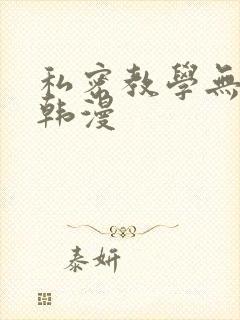 私密教學無
韩漫
泰妍